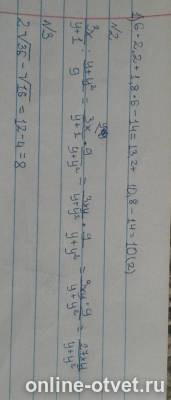 1) 6·2,2+1,8·6-14=13,2+10,8-14=10(2)
№2
3x/y+1 : y+y²/9 = 3x/y+1 · 9/y+y² = 3xy/y+y² · 9/y+y² = 9xy·9/y+y² = 27xy/y+y²
№3
2√36-√16=12-4=8
online-otvet.ru